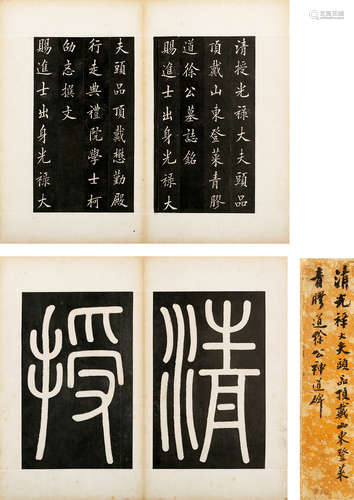 清授光祿大夫頭品
頂戴山東登萊青膠
道徐公墓誌銘
賜進士出身光祿大
夫頭品頂戴懋勤殿
行走典禮院學士柯
劭忞撰文
賜進士出身光祿大
清
授
清光祿大夫頭品頂戴山東登萊
青膠道徐公神道碑